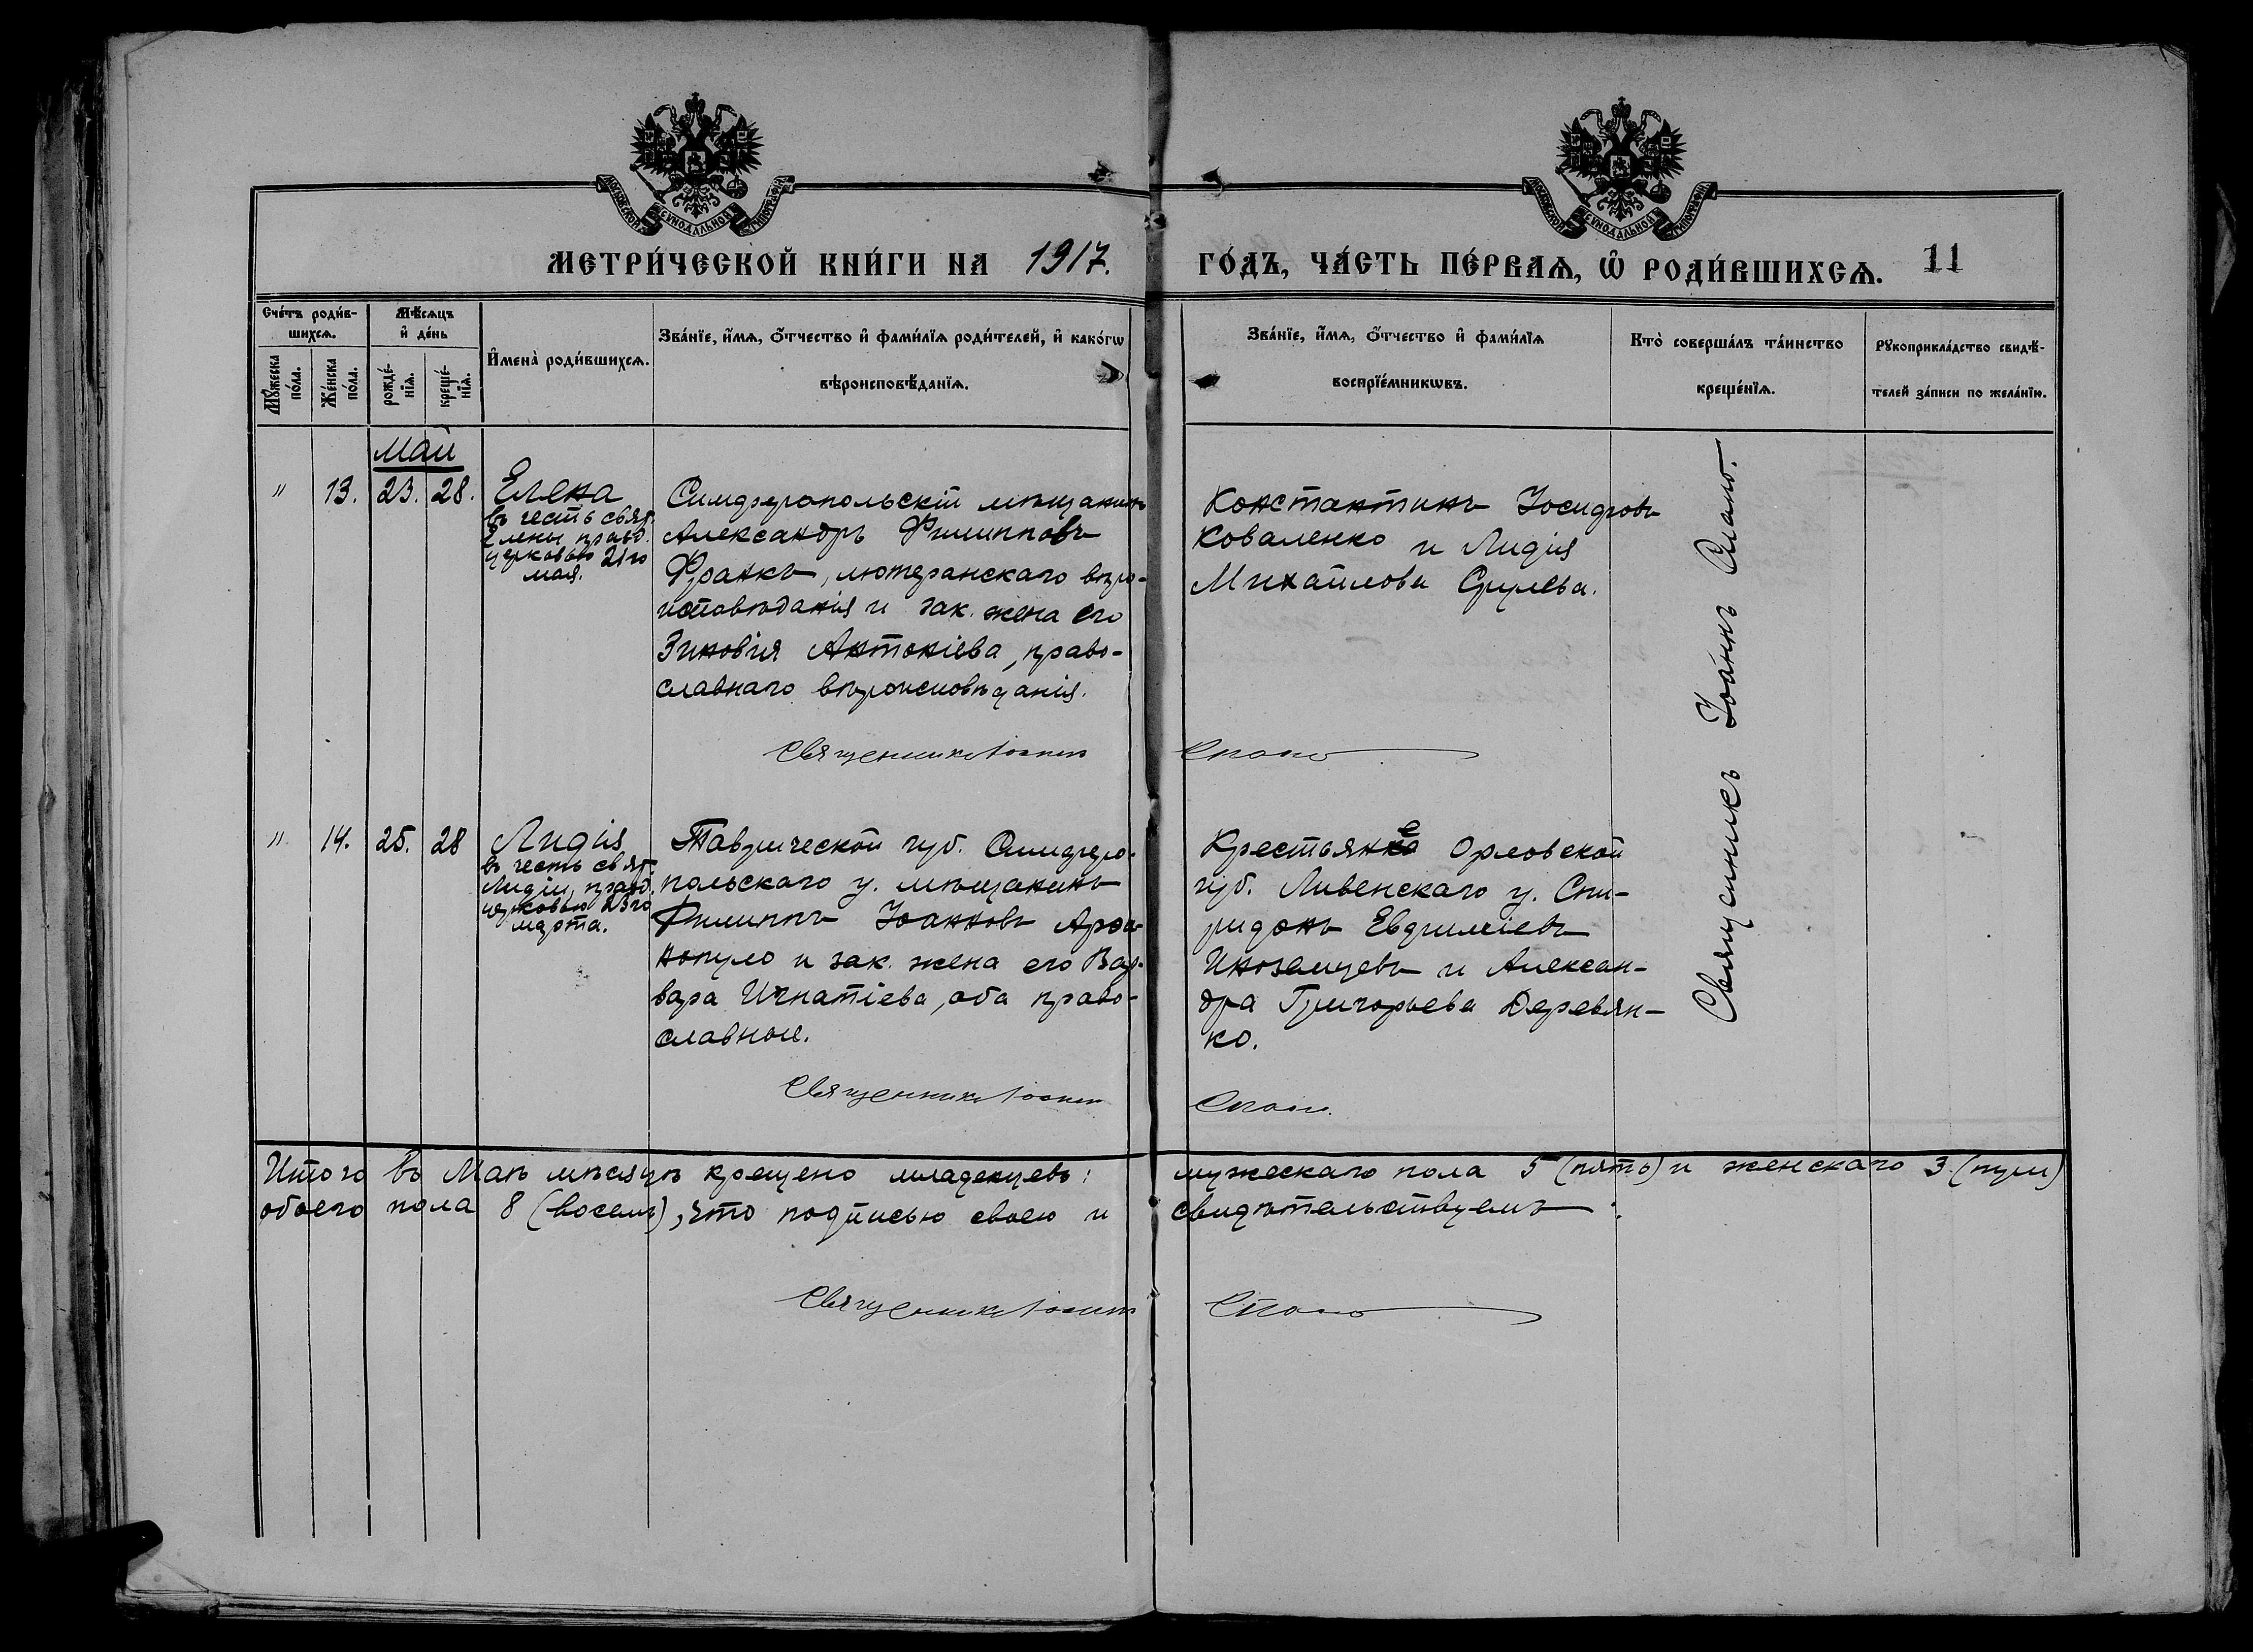 МОСКОВСКОЙ СѴНОДАЛЬНОЙ ТИПОГРАФІИ
МОСКОВСКОЙ СѴНОДАЛЬНОЙ ТИПОГРАФІИ
МЕТРИ́ЧЕСКОЙ КНИ́ГИ НА 1917. ГО́ДЪ, ЧА́СТЬ ПЕ́РВАѦ, Ѽ РОДИ́ВШИХСѦ. 11
Сче́тъ роди́в-
шихсѧ.
Мꙋ́жеска
по́ла.
Же́нска
по́ла.
Мѣ́сѧцъ
и҆ де́нь
рожде́-
нїѧ.
креще́-
нїѧ.
И҆мена̀ роди́вшихсѧ.
Зва́нїе, и҆́мѧ, ѻ҆́тчество и҆ фами́лїѧ роди́телей, и҆ како́гѡ
вѣроисповѣ́данїѧ.
Зва́нїе, и҆́мѧ, ѻ҆́тчество и҆ фами́лїѧ
воспрїе́мникѡвъ.
Кто̀ соверша́лъ та́инство
креще́нїѧ.
Рꙋкоприкла́дство свидѣ́-
телей за́писи по жела́нїю.
Май
" 13. 23. 28. Елена
въ честь свят.
Елены, празд.
церковью 21го
мая.
Симферопольскій мѣщанинъ
Александръ Филипповъ
Франкъ, лютеранскаго вѣро-
исповѣданія и зак. жена его
Зиновія Антоніева, право-
славнаго вѣроисповѣданія.
Константинъ Іосифовъ
Коваленко и Лидія
Михайлова
Священникъ Іоаннъ
Священникъ Іоаннъ
" 14. 25. 28 Лидія
въ честь свят.
Лидіи, празд.
церковью 23го
марта.
Таврической губ. Симферо-
польскаго у. мѣщанинъ
Филиппъ Іоанновъ
нопуло и зак. жена его Вар-
вара Игнатіева, оба право-
славные.
Крестьяне Орловской
губ. Ливенскаго у. Спи-
ридонъ Евфиміевъ
Иноземцевъ и Алексан-
дра Григорьева Деревян-
ко.
Священникъ Іоаннъ
Итого въ Маѣ мѣсяцѣ крещено младенцевъ: мужескаго пола 5 (пять) и женскаго 3 (три)
обоего пола 8 (восемь), что подписью своею и свидѣтельствуемъ:
Священникъ Іоаннъ